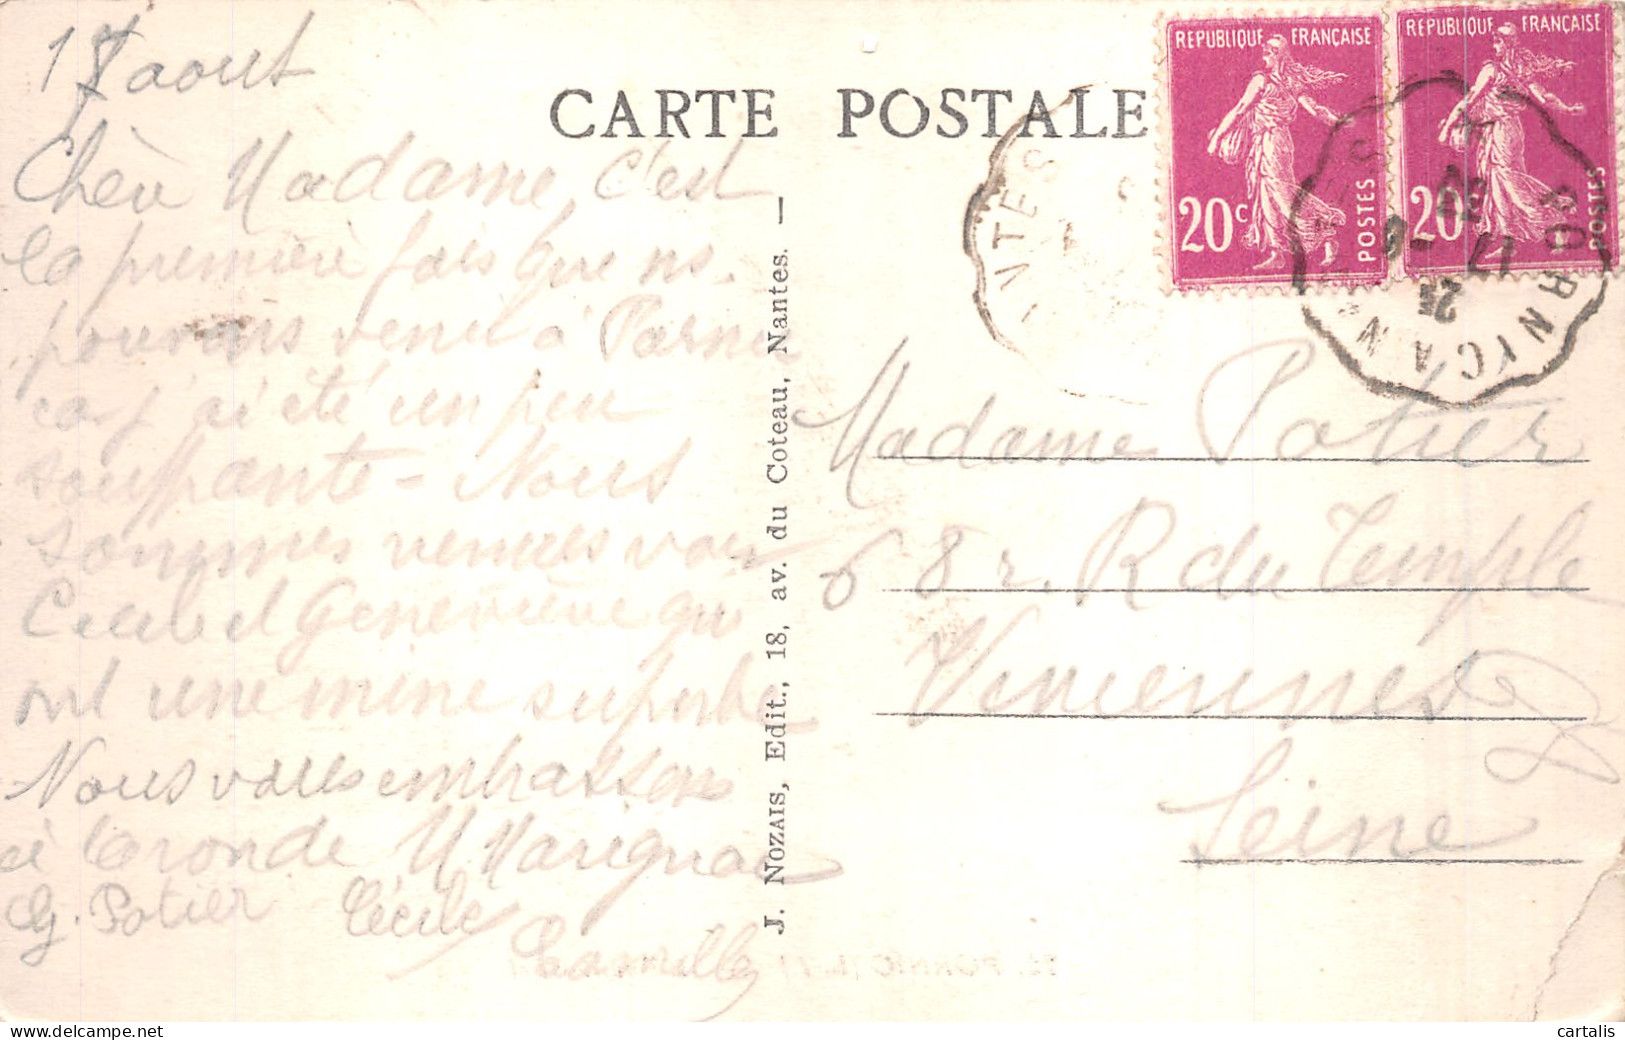 17 aout
CARTE POSTALE
REPUBLIQUE FRANÇAISE
20c
POSTES
REPUBLIQUE FRANÇAISE
20c
POSTES
PORNIC A NANTES
17 - 8
Chère Madame, c'est
la première fois que ns.
pouvons venir à
car j'ai été un peu
souffrante - Nous
sommes venues voir
Cécile et Geneviève qui
ont une mine superbe
Nous vous embrassons
à la ronde M Marignac
G. Potier Cécile
J. NOZAIS, Edit., 18, av. du Coteau, Nantes. —
Madame Potier
68 R du Temple
Vincennes
Seine
cartalis